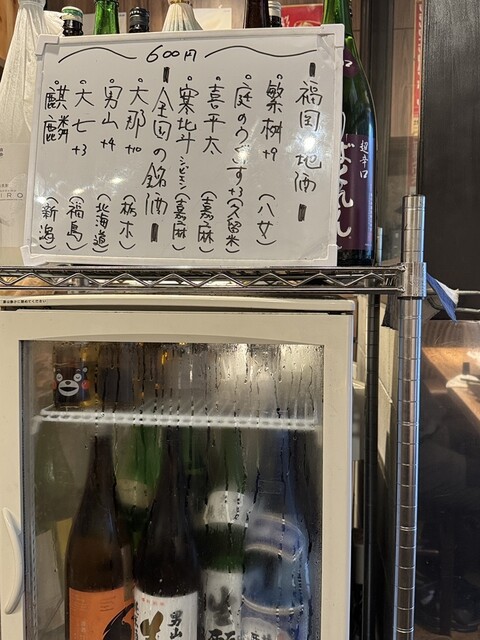 600円
福岡地酒
繁桝+9 (八女)
庭のうぐいす+3 (久留米)
喜平太 (嘉麻)
寒北斗 シビエン (嘉麻)
全国の銘酒
大那+10 (栃木)
男山+4 (北海道)
大七+3 (福島)
麒麟 (新潟)
超辛口
ばくれん
男山
生